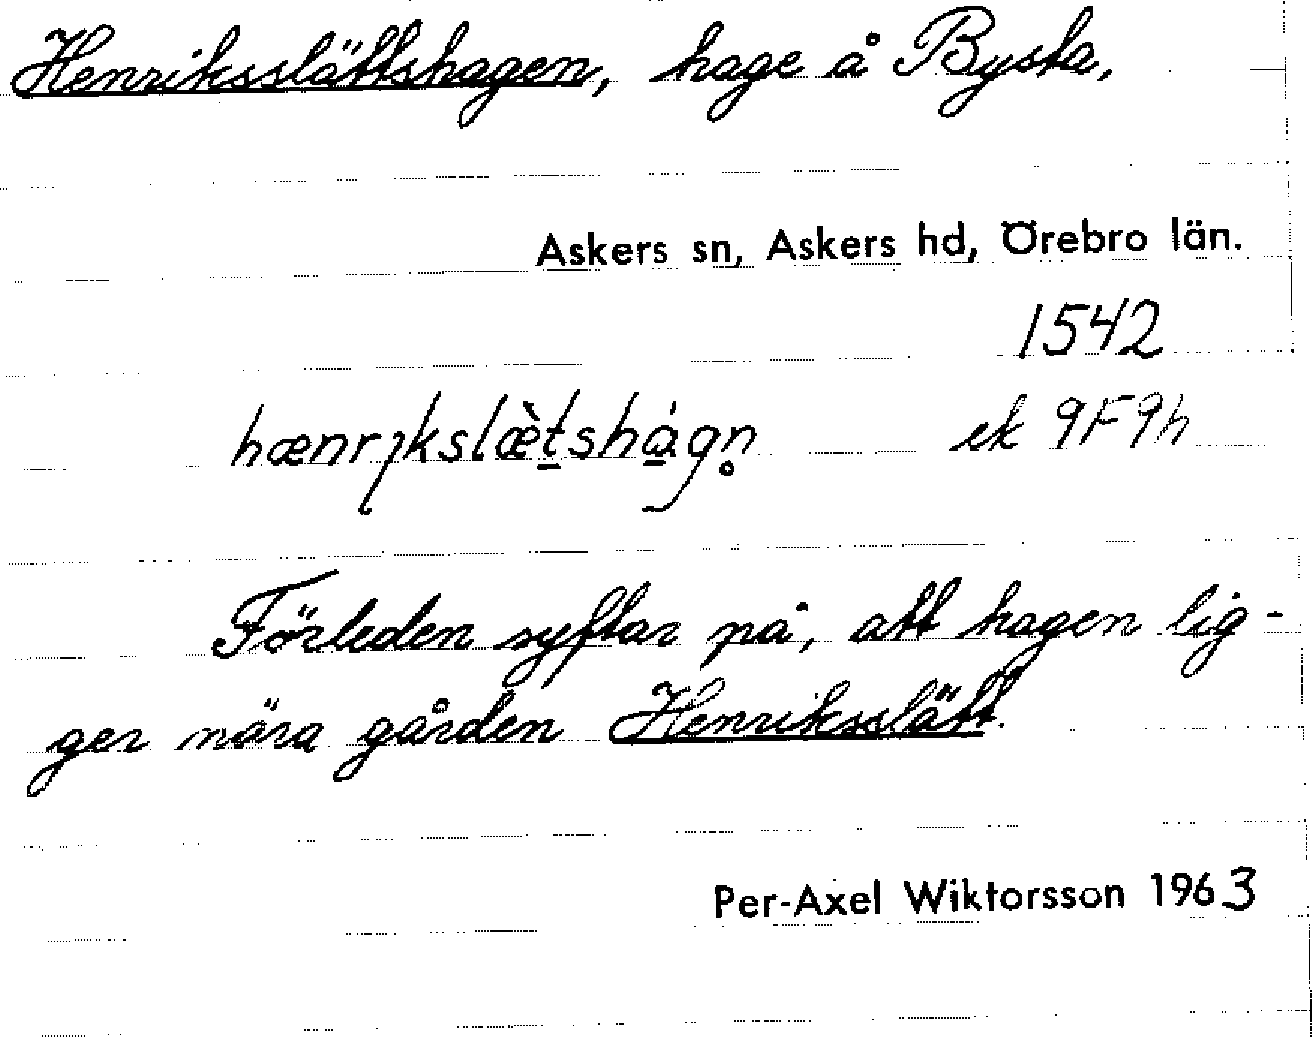 Henriksslättshagen, hage å Bysta,
Askers sn, Askers hd, Örebro län.
1542
hænrıkslæ̀tshágn̥ ek 9F9h
Förleden syftar på, att hagen lig-
ger nära gården Henriksslätt.
Per-Axel Wiktorsson 1963